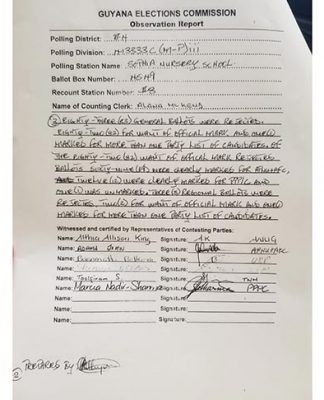 GUYANA ELECTIONS COMMISSION
Observation Report
Polling District: #4
Polling Division:
Polling Station Name: SOPHIA NURSERY SCHOOL.
Ballot Box Number:
Recount Station Number: #8
Name of Counting Clerk:
EIGHTY-THREE (83) GENERAL BALLOTS WERE REJECTED.
EIGHTY-TWO (82) FOR WANT OF OFFICAL MARK AND ONE(1)
MARKED FOR MORE THAN ONE PARTY LIST OF CANDIDATES. OF
THE EIGHTY-TWO (82) WANT OF OFFICAL MARK REJECTED
BALLOTS SIXTY-NINE (69) WERE CLEARLY MARKED FOR APNU/AFC,
TWELVE (12) WERE CLEARLY MARKED FOR PPP/C AND
ONE (1) WAS UNMARKED. THREE (3) REGIONAL BALLOTS WERE
REJECTED. TWO (2) FOR WANT OF OFFICAL MARK AND ONE (1)
MARKED FOR MORE THAN ONE PARTY LIST OF CANDIDATES.
Witnessed and certified by Representatives of Contesting Parties:
Name: Allison King Signature: AK ANUG
Name: Signature: APNU/AFC
Name: Signature:
Name: Signature:
Name: S. Signature: TNM
Name: Marcia Nadir-Sharma Signature: PPP/C
Name: Signature:
Name: Signature:
Name: Signature:
PREPARED BY